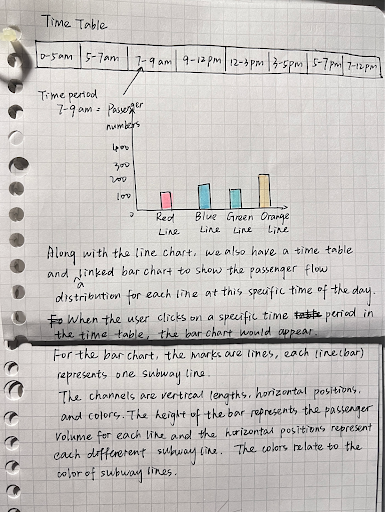 Time Table
0-5am 5-7am 7-9am 9-12pm 12-3pm 3-5pm 5-7pm 7-12pm
Time period
7-9am = Passenger
numbers
400
300
200
100
0
Red Line Blue Line Green Line Orange Line
Along with the line chart, we also have a time table
and a linked bar chart to show the passenger flow
distribution for each line at this specific time of the day.
When the user clicks on a specific time period in
the time table, the bar chart would appear.
For the bar chart, the marks are lines, each line(bar)
represents one subway line.
The channels are vertical lengths, horizontal positions,
and colors. The height of the bar represents the passenger
volume for each line and the horizontal positions represent
each differerent subway line. The colors relate to the
color of subway lines.